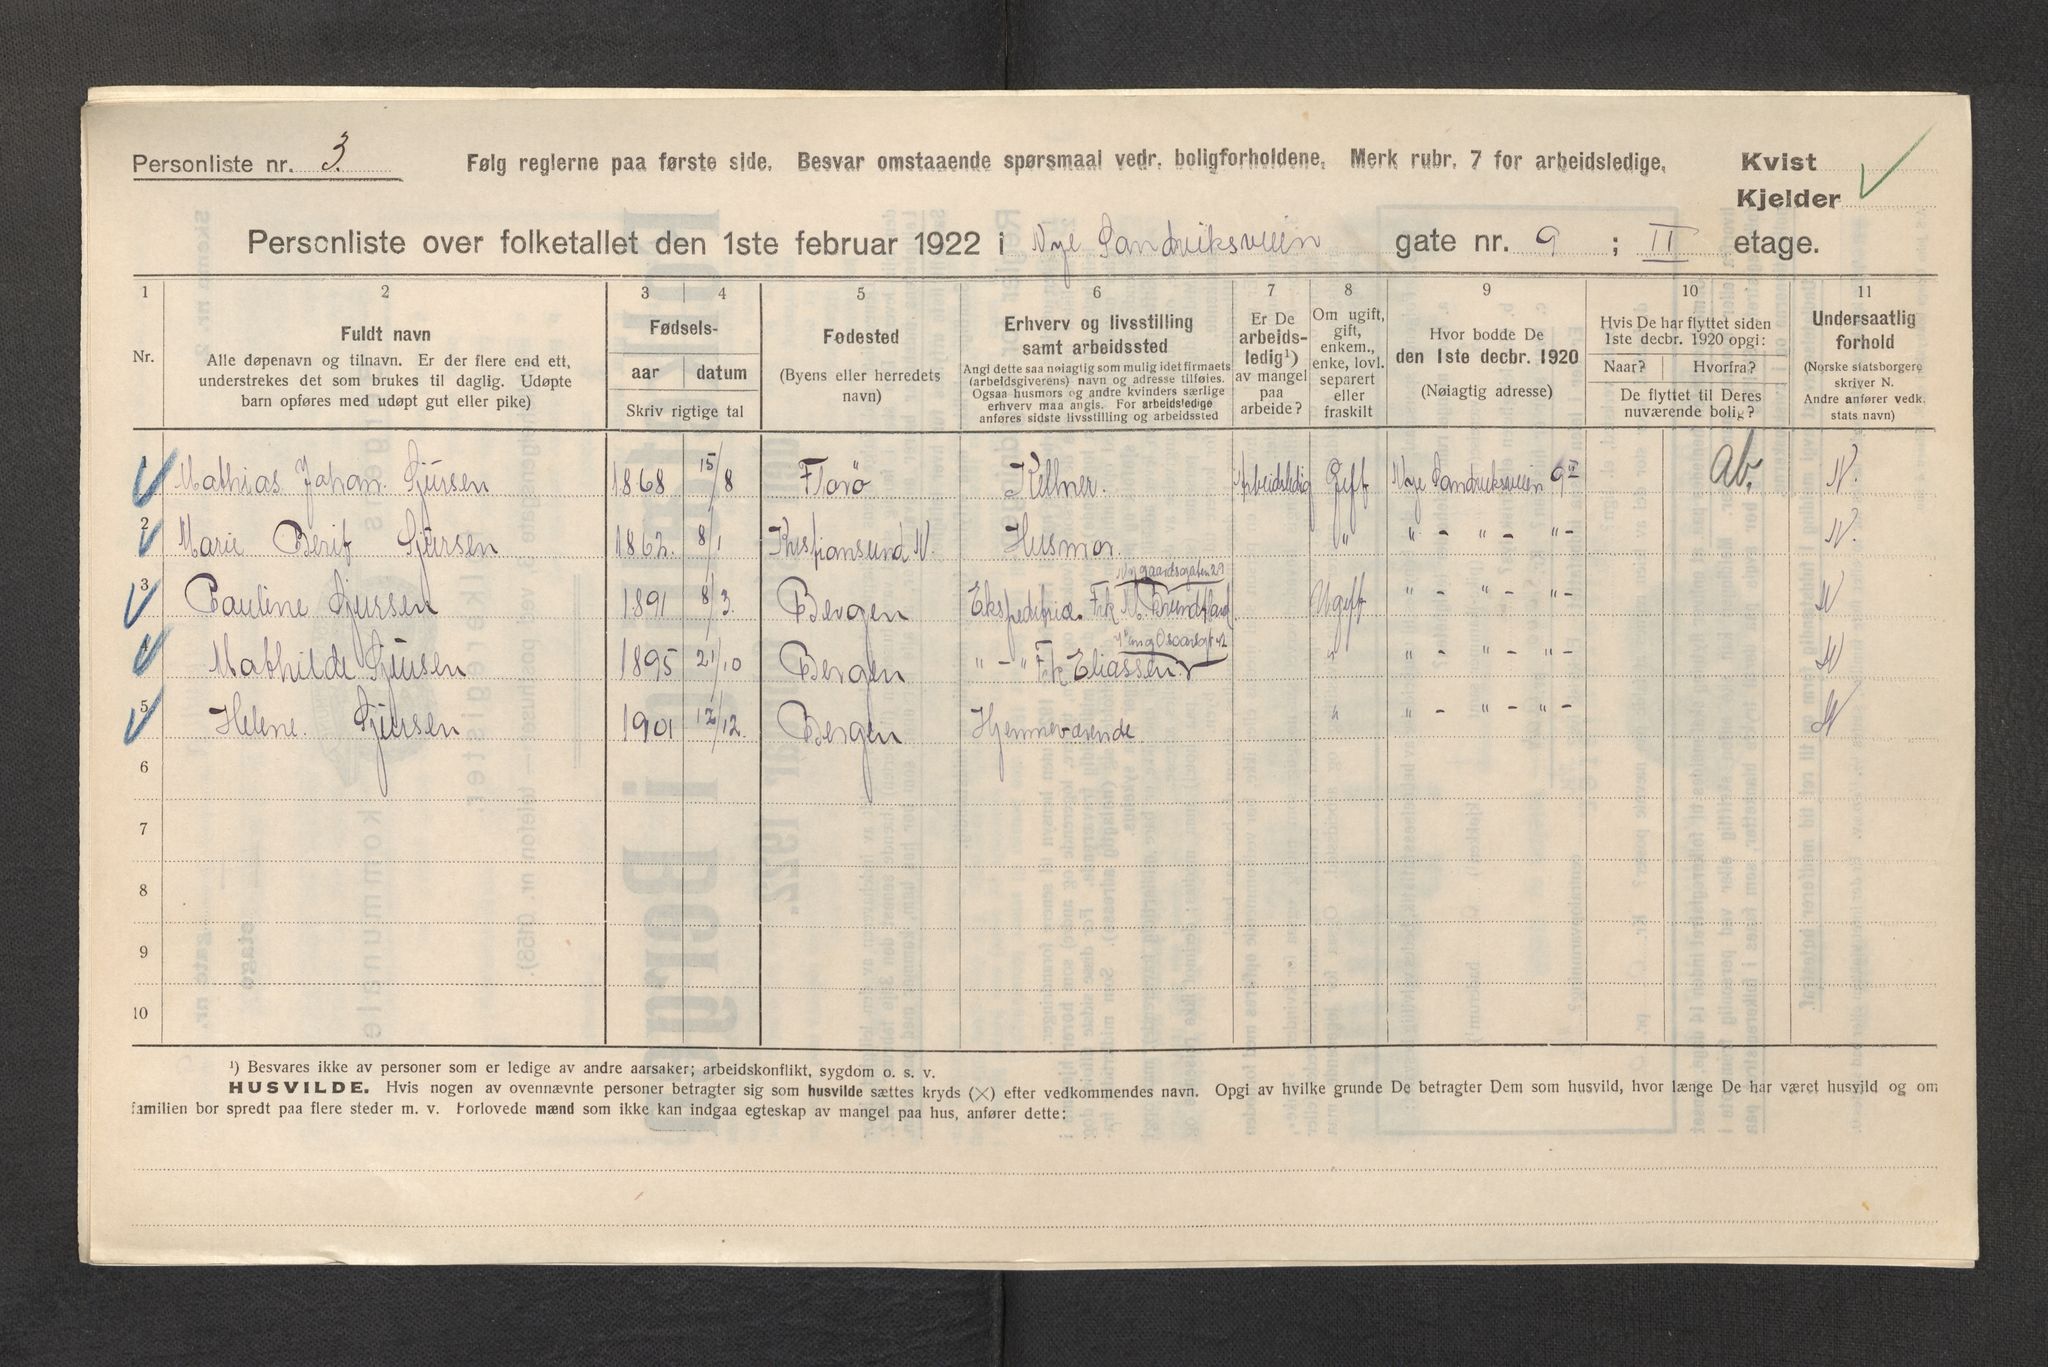 Personliste nr. 3. Følg reglerne paa første side. Besvar omstaaende spørsmaal vedr. boligforholdene. Merk rubr. 7 for arbeidsledige. Kvist
Kjelder
Personliste over folketallet den 1ste februar 1922 i Nye Sandviksveien gate nr. 9 ; II etage.
1 2 3 4 5 6 7 8 9 10 11
Nr.
Fuldt navn
Alle døpenavn og tilnavn. Er der flere end ett,
understrekes det som brukes til daglig. Udøpte
barn opføres med udøpt gut eller pike)
Fødsels-
aar datum
Skriv rigtige tal
Fødested
(Byens eller herredets
navn)
Erhverv og livsstilling
samt arbeidssted
Angi dette saa nøiagtig som mulig idet firmaets
(arbeidsgiverens) navn og adresse tilføies.
Ogsaa husmors og andre kvinders særlige
erhverv maa angis. For arbeidsledige
anføres sidste livsstilling og arbeidssted
Er De
arbeids-
ledig¹)
av mangel
paa
arbeide?
Om ugift,
gift,
enkem.,
enke, lovl.
separert
eller
fraskilt
Hvor bodde De
den 1ste decbr. 1920
(Nøiagtig adresse)
Hvis De har flyttet siden
1ste decbr. 1920 opgi:
Naar? Hvorfra?
De flyttet til Deres
nuværende bolig?
Undersaatlig
forhold
(Norske statsborgere
skriver N.
Andre anfører vedk.
stats navn)
Mathias Johan Gjursen 1868 15/8 Florø Kellner. Arbeidsledig Gift Nye Sandviksveien 9 II ab. N.
2 Marie Berit Gjursen 1862. 8/1 Kristiansund N. Husmor " " - " - " - N.
Nygaardsgaten 29
3 Pauline Gjursen 1891 8/3. Bergen Ekspeditrice Frk M. Ugift " - " - " - N
Oscarsgt 42
4 Mathilde Gjursen 1895 21/10 Bergen " - " Frk Eliassen " " - " - " - N
5 Helene. Gjursen 1901 12/12. Bergen Hjemmeværende. " " - " - " - N
6
7
8
9
10
¹) Besvares ikke av personer som er ledige av andre aarsaker; arbeidskonflikt, sygdom o. s. v.
HUSVILDE. Hvis nogen av ovennævnte personer betragter sig som husvilde sættes kryds (X) efter vedkommendes navn. Opgi av hvilke grunde De betragter Dem som husvild, hvor længe De har været husvild og om
familien bor spredt paa flere steder m. v. Forlovede mænd som ikke kan indgaa egteskap av mangel paa hus, anfører dette: